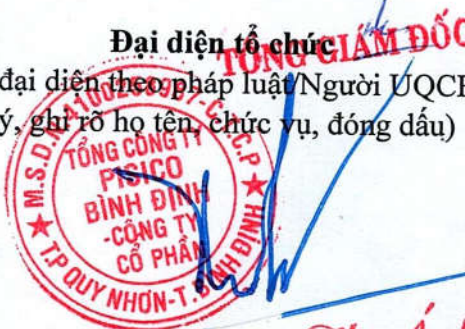 Đại diện tổ chức
TỔNG GIÁM ĐỐC
đại diện theo pháp luật/Người UQCB
ý, ghi rõ họ tên, chức vụ, đóng dấu)
TỔNG CÔNG TY
PISICO
BÌNH ĐỊNH
-CÔNG TY
CỔ PHẦN
T.P QUY NHƠN-T.BÌNH ĐỊNH